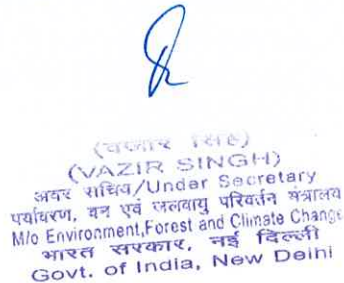 (वजीर सिंह)
(VAZIR SINGH)
अवर सचिव/Under Secretary
पर्यावरण, वन एवं जलवायु परिवर्तन मंत्रालय
M/o Environment,Forest and Climate Change
भारत सरकार, नई दिल्ली
Govt. of India, New Delhi